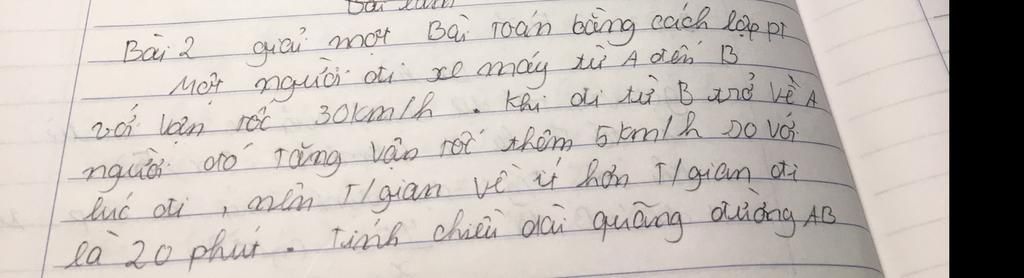 Bài làm
Bài 2 giải một Bài toán bằng cách lập pt
Một người đi xe máy từ A đến B
với vận tốc 30km/h. Khi đi từ B trở về A
người đó tăng vận tốc thêm 5km/h so với
lúc đi, nên T/gian về ít hơn T/gian đi
là 20 phút. Tính chiều dài quãng đường AB